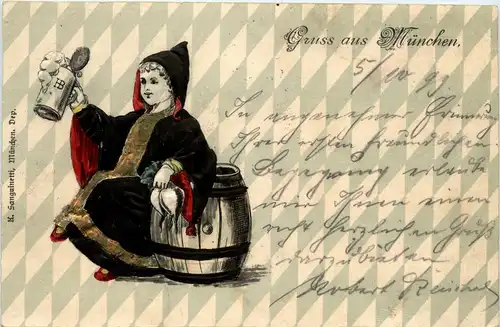 Gruss aus München.
5/10 99
In angenehmer Erinnerung
Ihrer ersten freundlichen
Begegnung erlaube
mir Ihnen einen
recht herzlichen Gruß
darzubieten
Robert
K. Sanguinetti, München. Dep.
HB